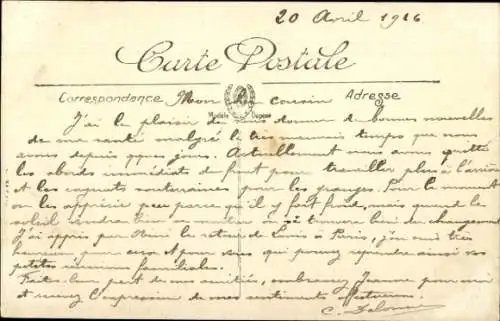 20 Avril 1916
Carte Postale
Correspondence Adresse
Modèle Déposé
Mon cher cousin
J'ai le plaisir de vous donner de bonnes nouvelles
de ma santé malgré le très mauvais temps que nous
avons depuis qques jours. Actuellement nous avons quitté
les abords immédiats du front pour travailler plus à l'arrière
et les cagnats souterraines pour les granges. Pour le moment
on les apprécie peu parce qu'il y fait froid, mais quand le
soleil viendra bien se mettre on s'y trouvera bien du changement
J'ai appris par le retour de Louis à Paris, j'en suis très
heureux pour eux et pour vous qui pouvez reprendre ainsi vos
petites réunions familiales.
Faites bon part de mes amitiés, embrassez Jeanne pour moi
et recevez l'expression de mes sentiments affectueux.
C.